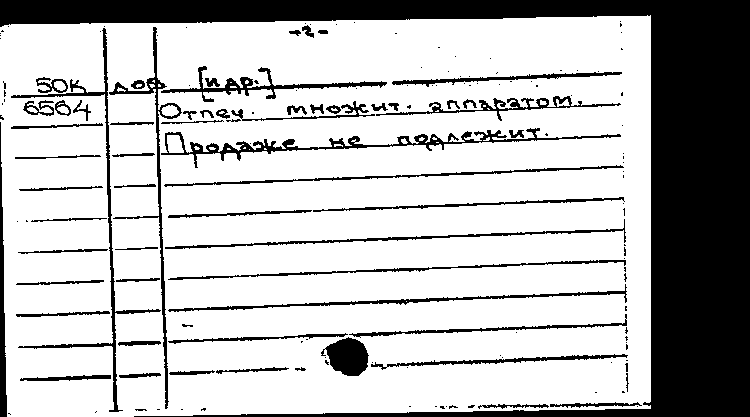 -2-
50К лоф [и др.]
6564 Отпеч. множит. аппаратом.
Продаже не подлежит.